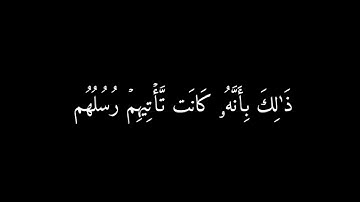 ذَٰلِكَ بِأَنَّهُۥ كَانَت تَّأۡتِيهِمۡ رُسُلُهُم